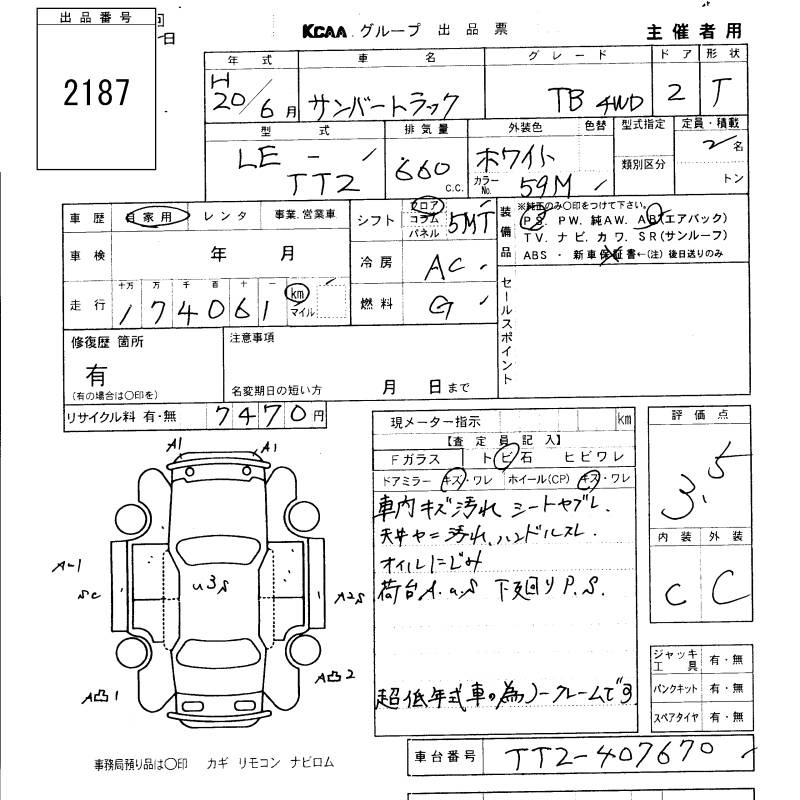 出品番号
2187
回
日
KCAA グループ 出品票
主催者用
年式 車名 グレード ドア 形状
H20/6月 サンバートラック TB 4WD 2 T
型式 排気量 外装色 色替 型式指定 定員・積載
LE-TT2 660 c.c. ホワイト 2名
カラーNo. 59M 類別区分 トン
車歴 自家用 レンタ 事業.営業車
シフト フロア コラム パネル 5MT
装備品 ※純正のみ〇印をつけて下さい。
PS. PW. 純AW. AB(エアバック)
TV. ナビ. カワ. SR(サンルーフ)
ABS ・ 新車保証書←(注)後日送りのみ
車検 年 月
冷房 AC
走行 十万 万 千 百 十 一
174061 km マイル
燃料 G
セールスポイント
修復歴 箇所
有
(有の場合は〇印を)
注意事項
名変期日の短い方 月 日まで
リサイクル料 有・無 7470円
現メーター指示 km
【査定員記入】
Fガラス トビ石 ヒビワレ
ドアミラー キズ・ワレ ホイール(CP) キズ・ワレ
車内キズ汚れ シートヤブレ.
天井ヤニ汚れ、ハンドルスレ
オイルにじみ
荷台A.u.S 下廻りP.S.
超低年式車の為ノークレームです
評価点
3.5
内装 外装
C C
A1 A1
A-1
sc
u3s
A2s
A凸1
A凸2
ジャッキ工具 有・無
パンクキット 有・無
スペアタイヤ 有・無
車台番号 TT2-407670
事務局預り品は〇印 カギ リモコン ナビロム